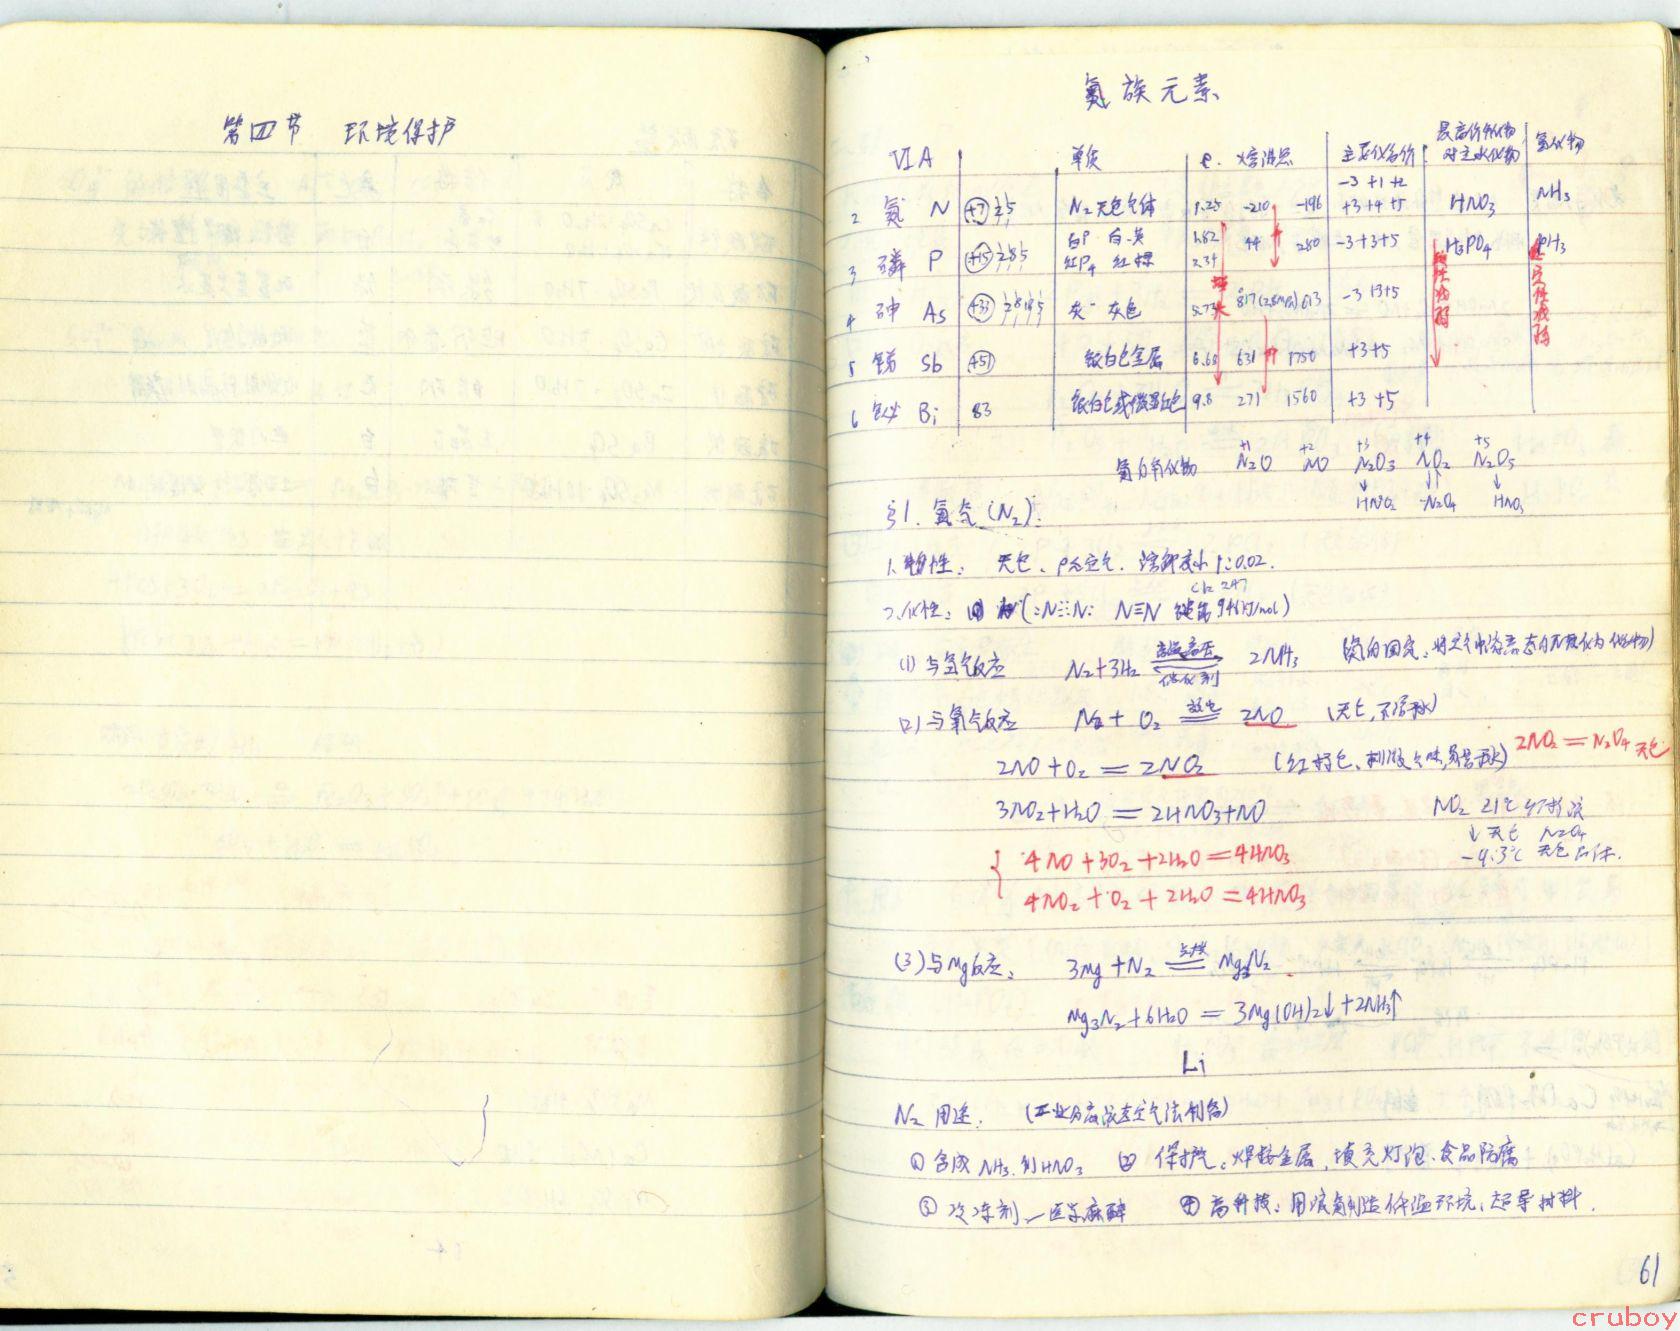 第四节 环境保护
氮族元素
VIA 单质 ρ. 熔沸点 主要化合价 最高价氧化物对应水化物 氢化物
2 氮 N +7 2 5 N₂ 无色气体 1.25 -210 -196 -3 +1 +2 +3 +4 +5 HNO₃ NH₃
3 磷 P +15 2 8 5 白P 白.黄 红P₄ 红棕 1.82 2.34 44 280 -3+3+5 H₃PO₄ PH₃
4 砷 As +33 2 8 18 5 灰 灰色 5.73 817(2.8MPa) 613 -3+3+5
5 锑 Sb +51 银白色金属 6.68 631 1750 +3+5
6 铋 Bi 83 银白色或微显红色 9.8 271 1560 +3+5
增大
酸性减弱
稳定性减弱
氮的氧化物 +1 N₂O +2 NO +3 N₂O₃ +4 NO₂ +5 N₂O₅
↓ HNO₂ ↓↑ N₂O₄ ↓ HNO₃
§1. 氮气(N₂).
1.物性: 无色、ρ≈空气. 溶解度小 1:0.02.
Cl₂ 247
2.化性: (:N⋮⋮N: N≡N 键能 946kJ/mol)
(1) 与氢气反应 N₂+3H₂ ⇌ 高温高压 催化剂 2NH₃
(2) 与氧气反应 N₂ + O₂ ═ 放电 2NO (无色,不溶水)
2NO + O₂ = 2NO₂ (红棕色、刺激气味,易溶水) 2NO₂ = N₂O₄ 无色
3NO₂+H₂O = 2HNO₃+NO NO₂ 21℃ 红棕液
↓ 无色 N₂O₄
-9.3℃ 无色晶体.
4NO + 3O₂ + 2H₂O = 4HNO₃
4NO₂ + O₂ + 2H₂O = 4HNO₃
(3) 与Mg反应: 3Mg + N₂ ═ 点燃 Mg₃N₂
Mg₃N₂ + 6H₂O = 3Mg(OH)₂↓ + 2NH₃↑
Li
N₂ 用途. (工业分离液态空气法制备)
① 合成NH₃.制HNO₃ ② 保护气:焊接金属,填充灯泡.食品防腐
③ 冷冻剂—医学麻醉 ④ 高科技:用液氮制造低温环境,超导材料.
61
cruboy